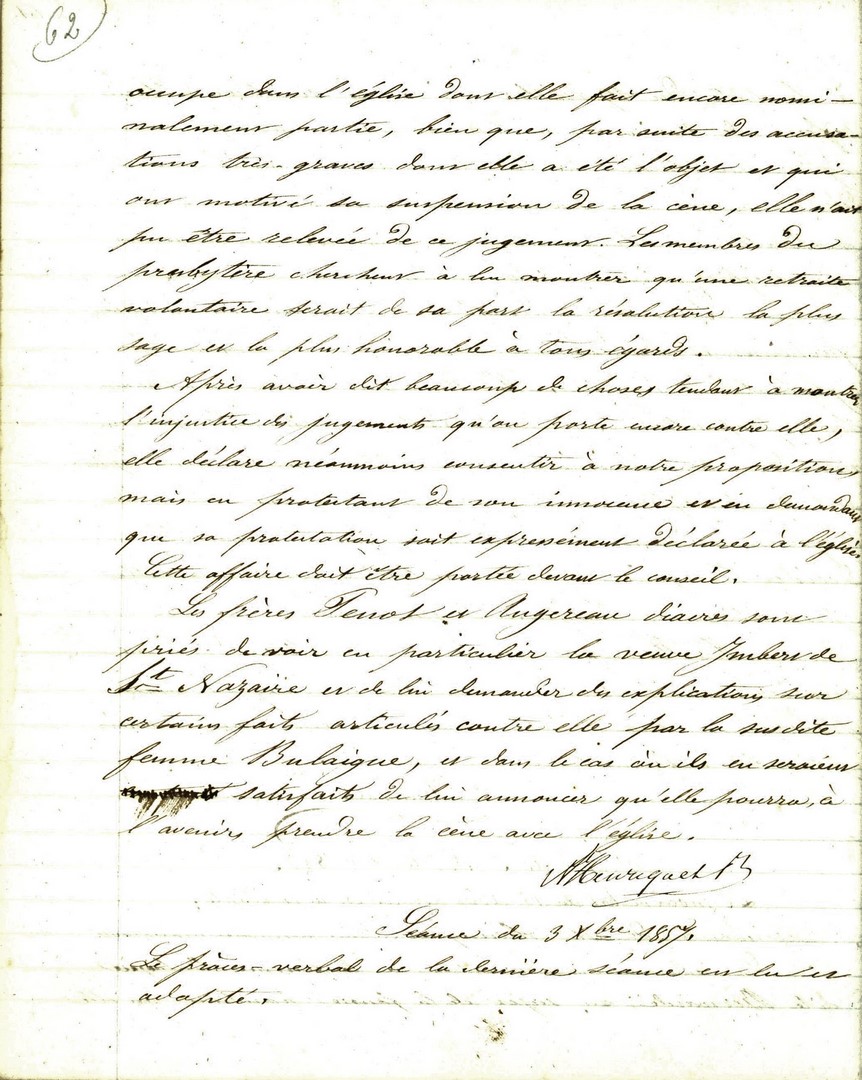 62
occupe dans l'église dont elle fait encore nomi-
nalement partie, bien que, par suite des accusa-
tions très-graves dont elle a été l'objet et qui
ont motivé sa suspension de la cène, elle n'ait
pu être relevée de ce jugement. Les membres du
presbytère cherchent à lui montrer qu'une retraite
volontaire serait de sa part la résolution la plus
sage et la plus honorable à tous égards.
Après avoir dit beaucoup de choses tendant à montrer
l'injustice des jugements qu'on porte encore contre elle,
elle déclare néanmoins consentir à notre proposition,
mais en protestant de son innocence et en demandant
que sa protestation soit expressément déclarée à l'église.
Cette affaire doit être portée devant le conseil.
Les frères Tenot et Augereau diacres sont
priés de voir en particulier la veuve Imbert de
St Nazaire et de lui demander des explications sur
certains faits articulés contre elle par la susdite
femme Bulaigue, et dans le cas où ils en seraient
satisfaits de lui annoncer qu'elle pourra, à
l'avenir, prendre la cène avec l'église.
Henriquet
Séance du 3 Xbre 1857.
Le procès-verbal de la dernière séance est lu et
adopté.